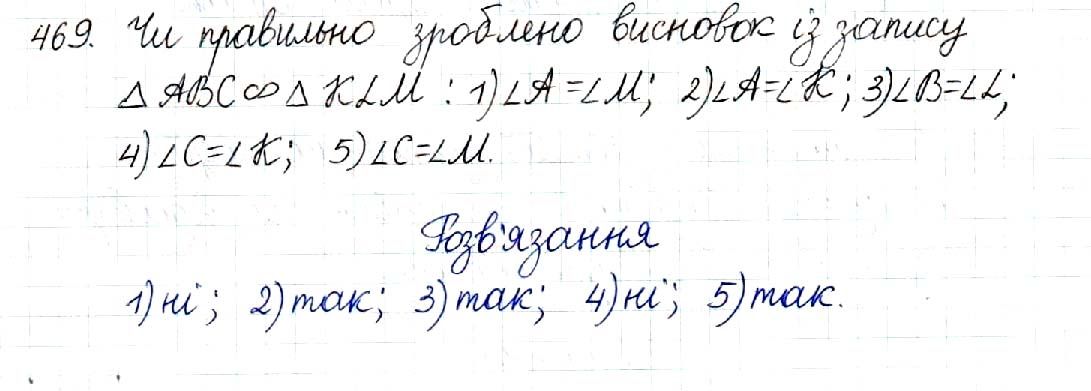 469. Чи правильно зроблено висновок із запису
△ ABC ∞ △ KLM : 1) ∠A = ∠M; 2) ∠A = ∠K; 3) ∠B = ∠L;
4) ∠C = ∠K; 5) ∠C = ∠M.
Розв'язання
1) ні; 2) так; 3) так; 4) ні; 5) так.